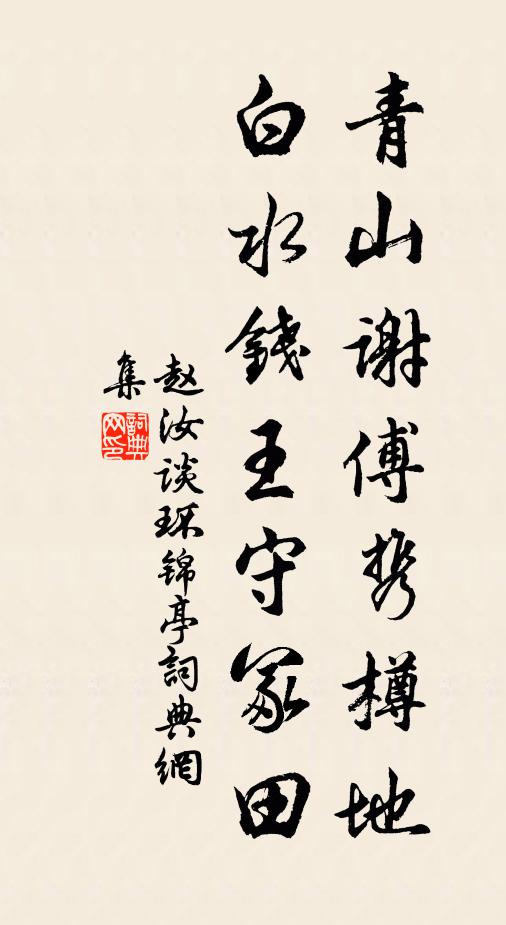 青山谢傅携樽地
白水錢王守冢田
赵汝谈环锦亭詞典網
集
詞典
网印